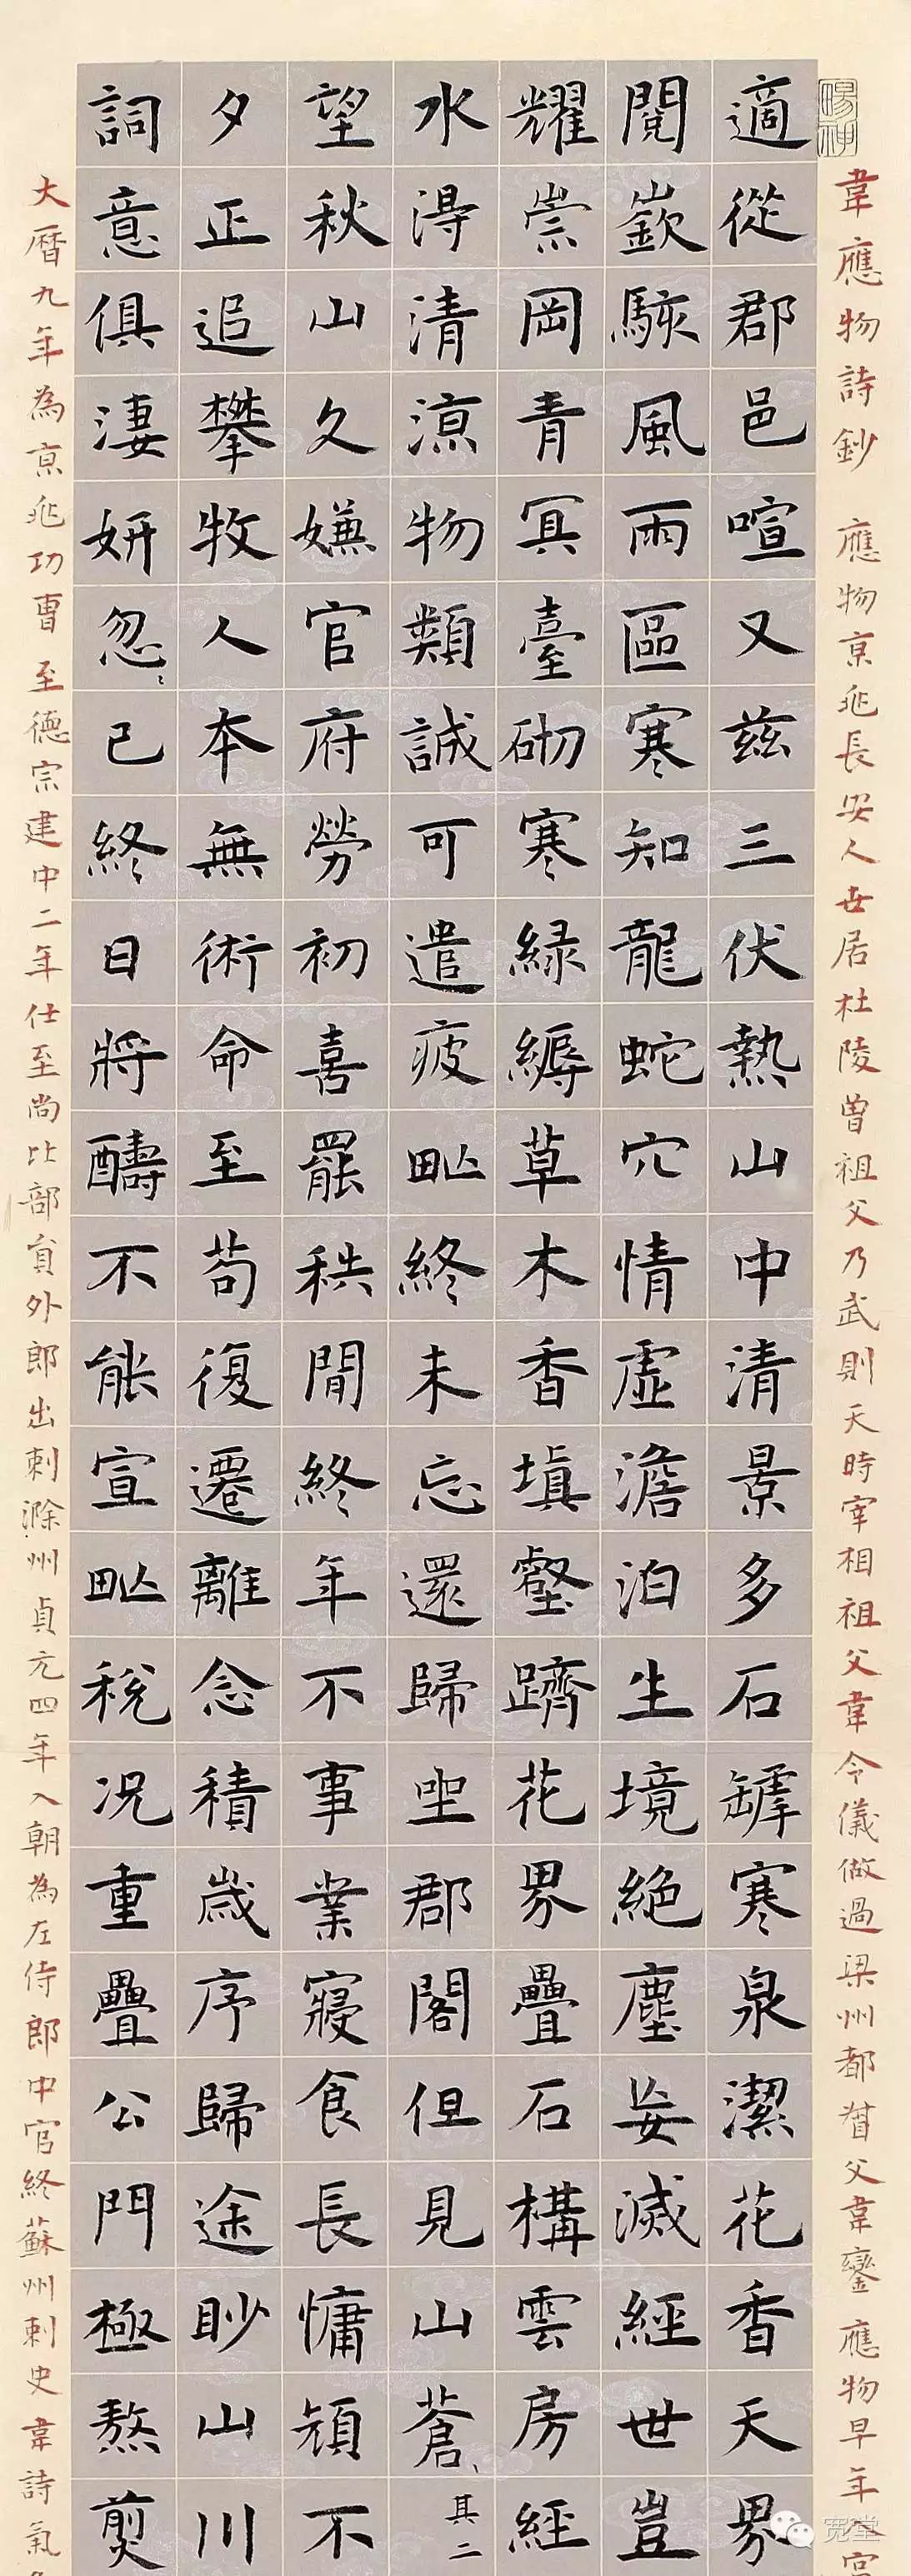 暢神
韋應物詩鈔 應物京兆長安人世居杜陵曾祖父乃武則天時宰相祖父韋令儀做過梁州都督父韋鑾應物早年
適從郡邑喧又兹三伏熱山中清景多石罅寒泉潔花香天界
閱嶔駭風雨區寒知龍蛇穴情虛澹泊生境絕塵妄滅經世豈
耀崇岡青冥臺砌寒緑縟草木香填壑躋花界疊石構雲房經
水得清涼物類誠可遣疲甿終未忘還歸坐郡閣但見山蒼〻 其二
望秋山久嫌官府勞初喜罷秩閒終年不事業寢食長慵頑不
夕正追攀牧人本無術命至苟復遷離念積歲序歸途眇山川
詞意俱淒妍忽〻已終日將醻不能宣甿稅況重疊公門極熬煎
大曆九年為京兆功曹至德宗建中二年仕至尚比部員外郎出刺滁州貞元四年入朝為左侍郎中官終蘇州刺史韋詩氣
宽堂